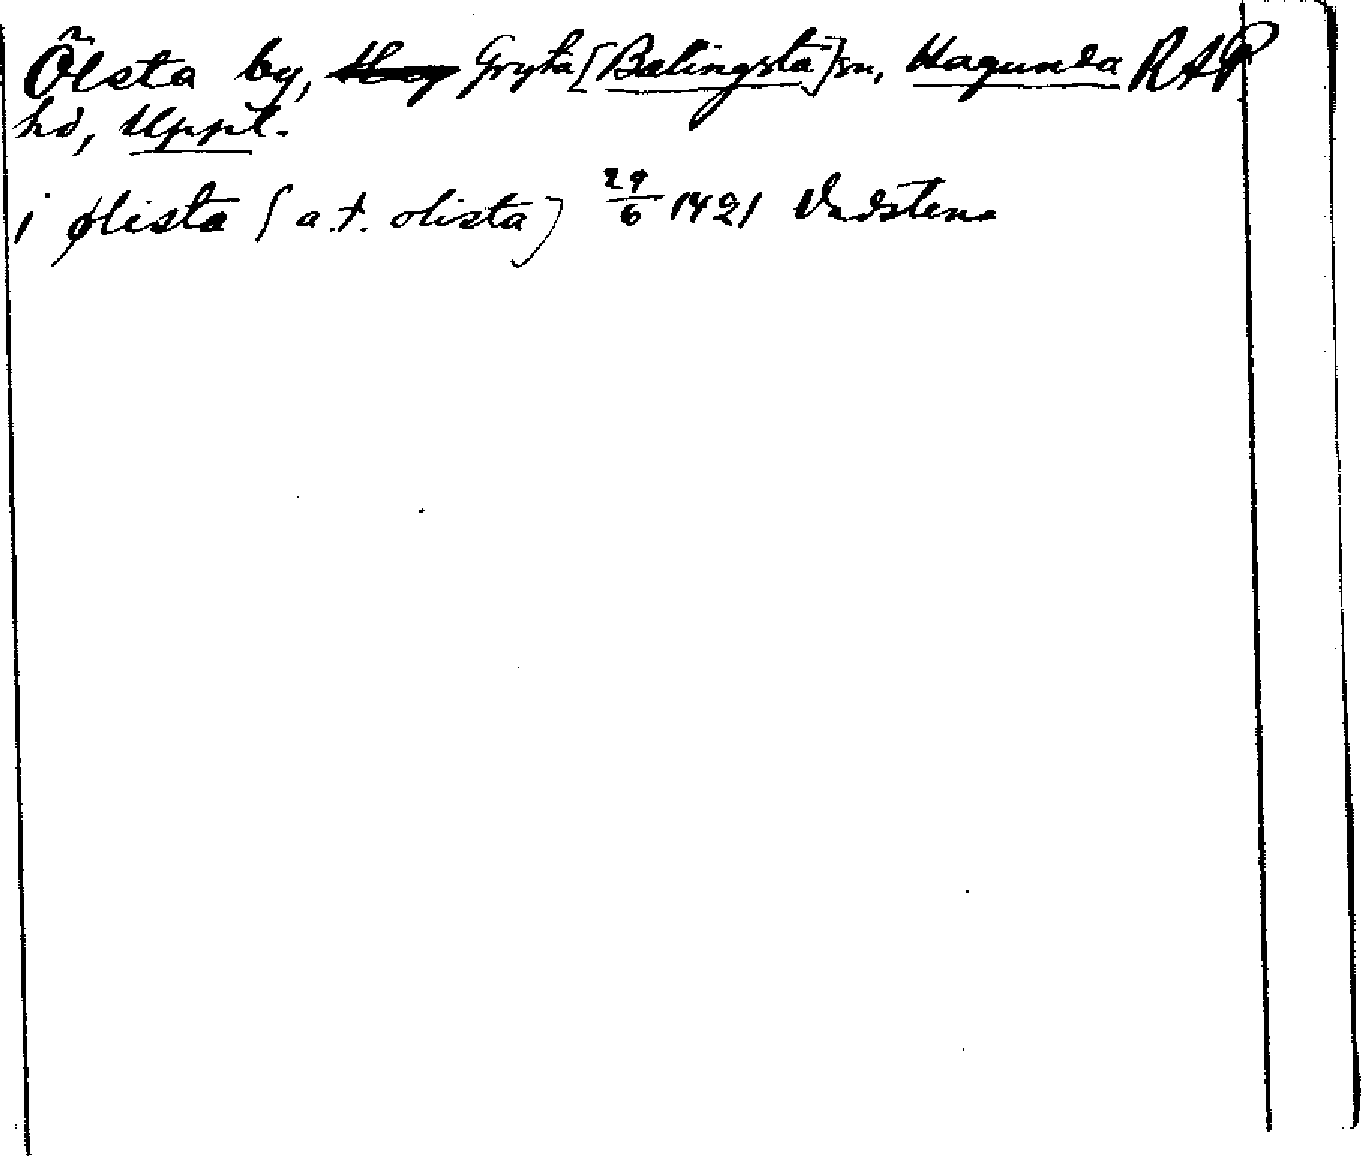 Ölsta by, Gryta [Balingsta] sn, Hagunda RAP
hd, Uppl.
i ølista (a.t. olista) 29/6 1421 Vadstena